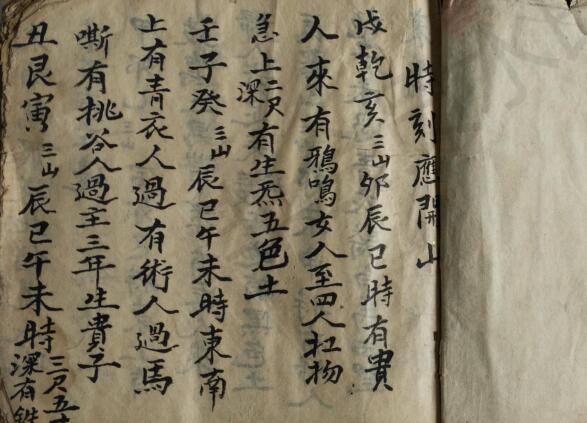 時刻應開山
戌乾亥三山卯辰巳時有貴
人來有鴉鳴女人至四人扛物
急上深二尺有生炁五色土
壬子癸三山辰巳午未時東南
上有青衣人過有術人過馬
嘶有挑谷人過至三年生貴子
丑艮寅三山辰巳午未時三尺五寸深有鉄